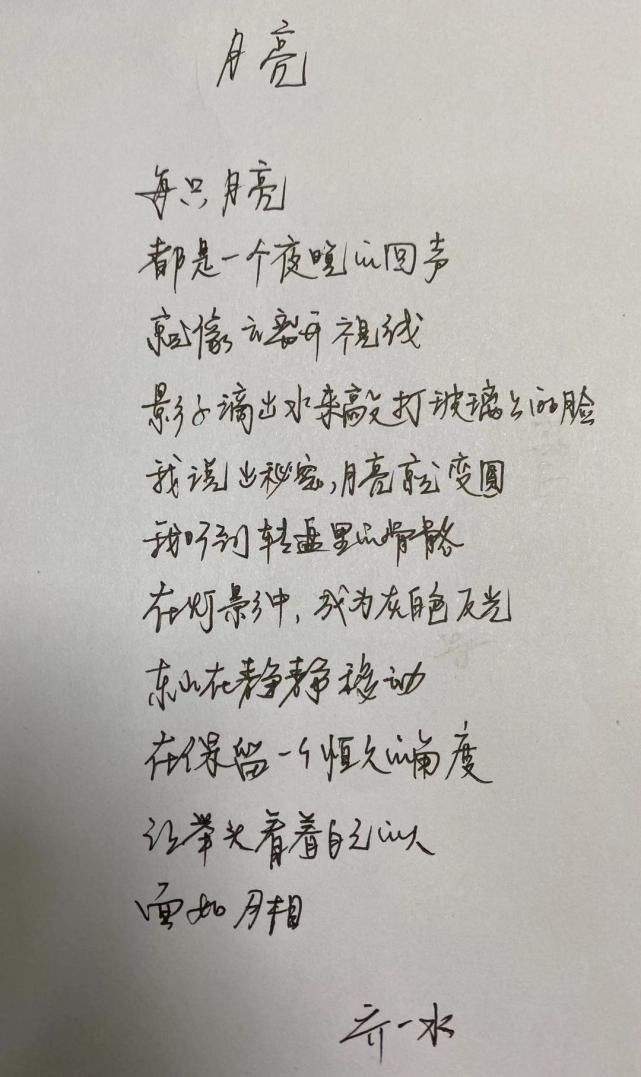 月亮
每只月亮
都是一个夜晚的回声
就像云裂开视线
影子滴出水来敲打玻璃上的脸
我说出秘密,月亮就变圆
我听到转盘里的骨骼
在灯影中,成为灰色反光
东山在静静移动
在保留一个恒久的角度
让举头看着自己的人
面如月相
齐一水